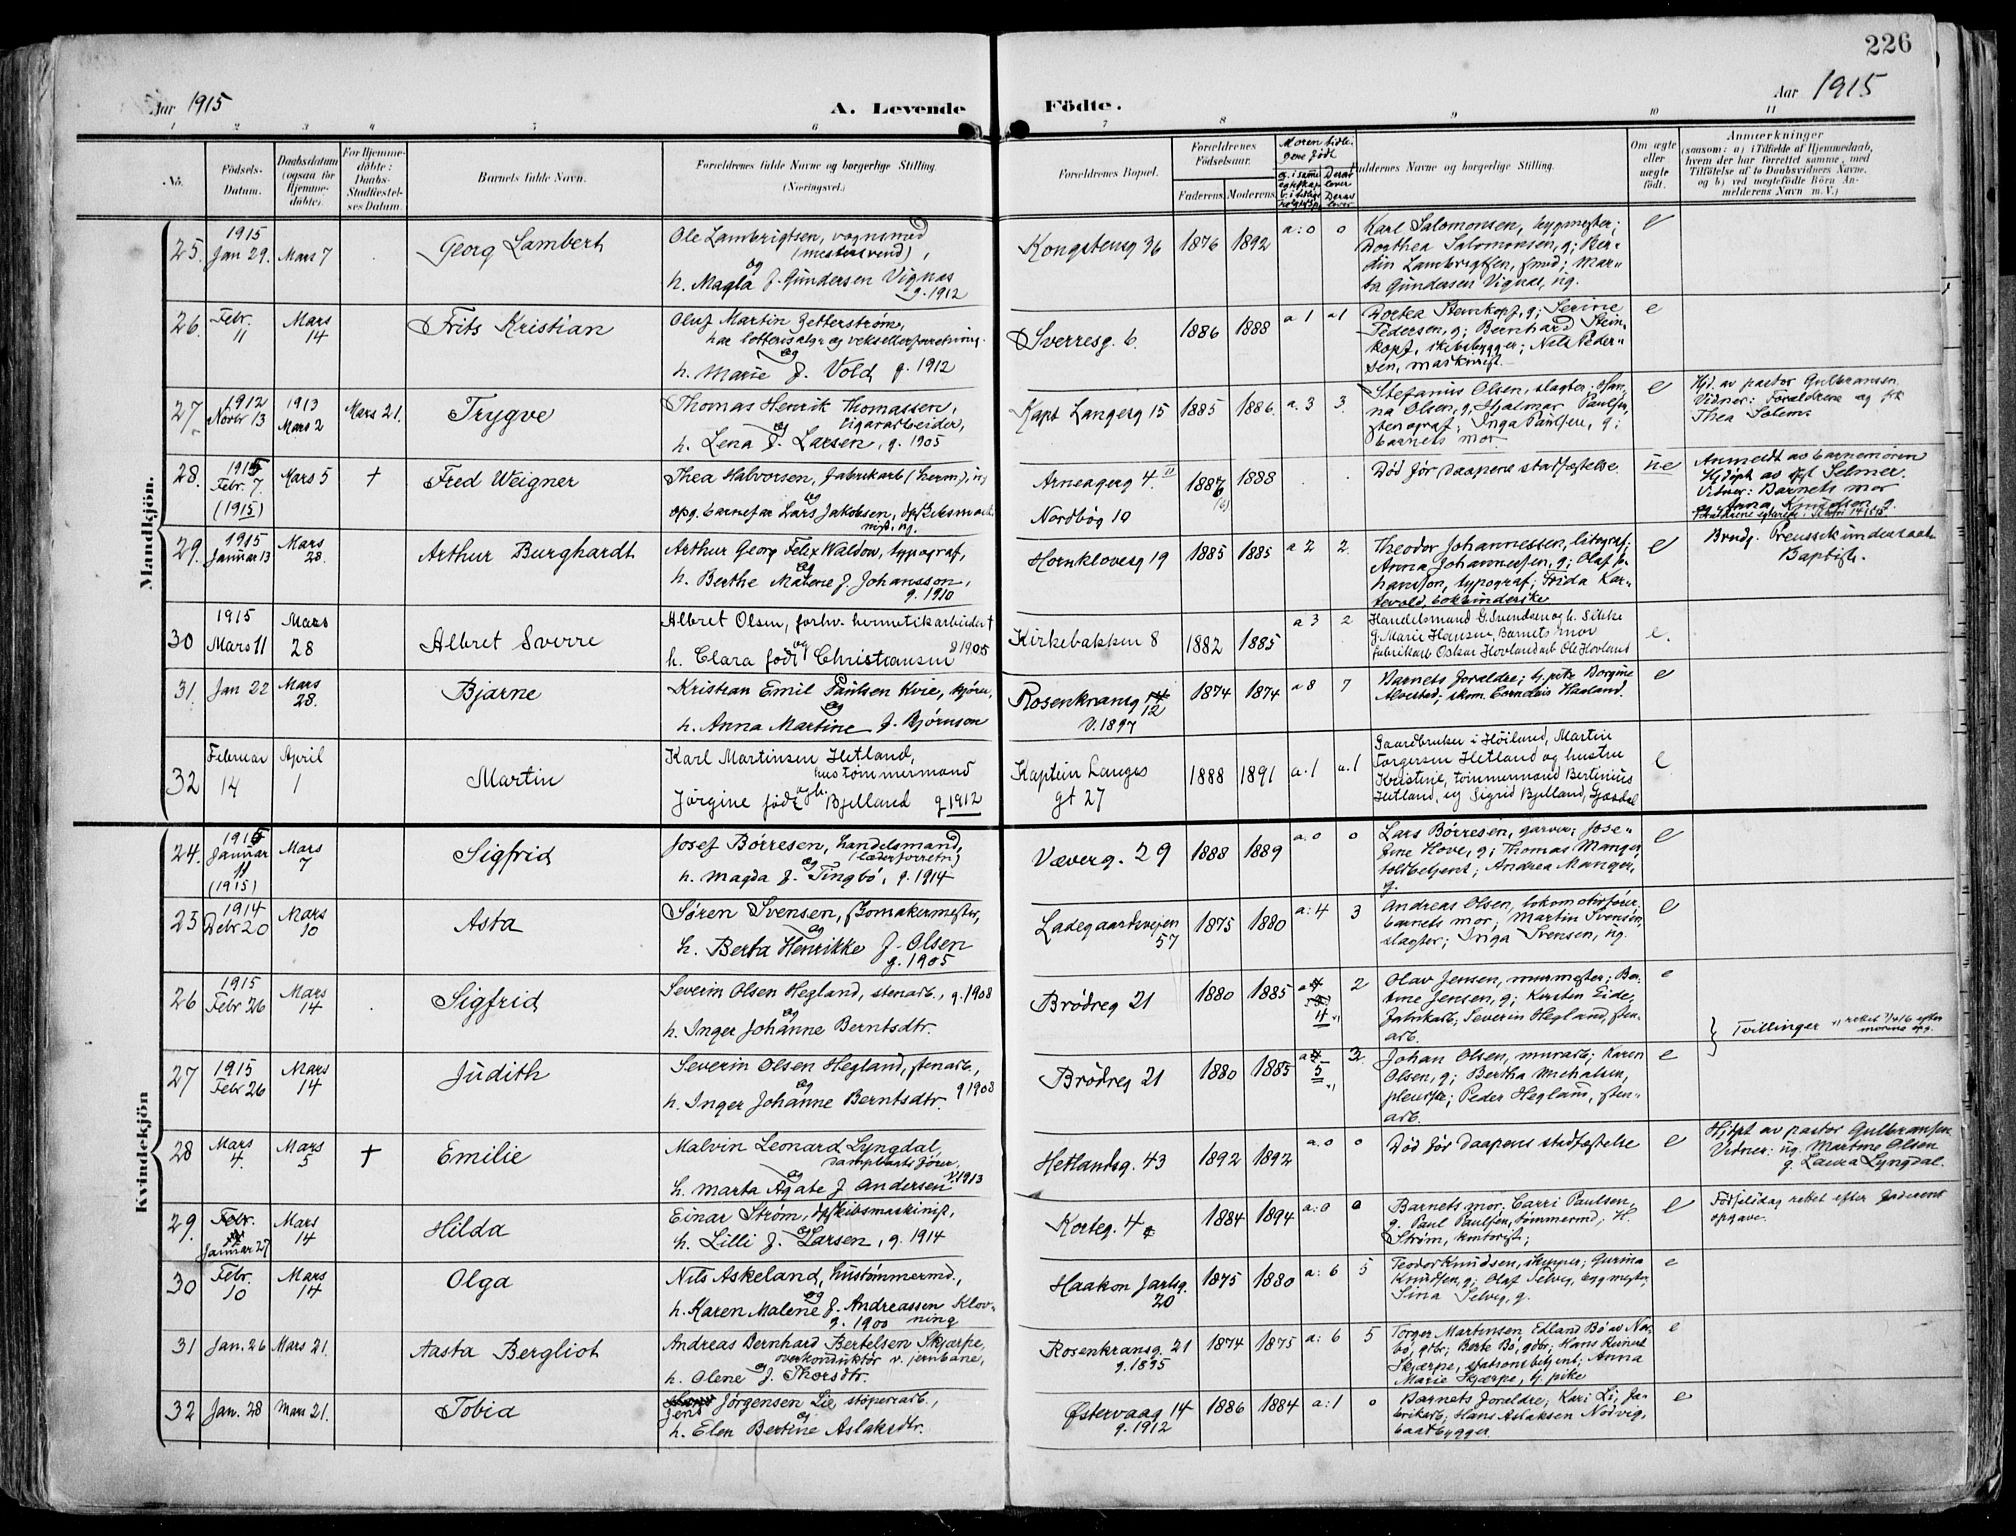 226
Aar 1915
A. Levende
Födte.
Aar 1915
1 2 3 4 5 6 7 8 9 10 11
No.
Födsels-
Datum.
Daabsdatum
(ogsaa for
Hjemme-
döbte).
For Hjemme-
döbte:
Daabs-
Stadfæstel-
ses Datum.
Barnets fulde Navn.
Forældrenes fulde Navne og borgerlige Stilling.
(Næringsvei.)
Forældrenes Bopæl.
Forældrenes
Födselsaar.
Faderens. Moderens.
Moren tidli-
gere født
Faddernes Navne og borgerlige Stilling.
Om ægte
eller
uægte
født.
Anmærkninger
(saasom: a) i Tilfælde af Hjemmedaab,
hvem der har forrettet samme, med
Tilföielse af to Daabsvidners Navne,
og b) ved uægtefödte Börn An-
melderens Navn m. V.)
Mandkjön.
25.
1915
Jan 29.
Mars 7
Georg Lambert
Ole Lambrigtsen, vognsmed
(mestersvend),
og
h. Magla f. Gundersen Vignæs
g. 1912
Kongstensg 36
1876
1892
a: 0
0
Karl Salomonsen, bygmester;
Dorthea Salomonsen, g; Ber-
din Lambrigtsen, smed; Mar-
ta Gundersen Vignæs, ug.
e
26.
Febr.
11
Mars
14
Frits Kristian
Oluf Martin Zetterstrøm,
har lotterisalg og vekselerforretning.
og
h. Marie f. Vold g. 1912
Sverresg. 6.
1886
1888
a 1
a1
Dortea Steinkopf, g; Serine
Pedersen, g; Bernhard Stein-
kopf, skibsbygger; Nels Peder-
sen, maskinist.
e
27
1912
Novbr 13
1913
Mars 2
Mars 21.
Trygve
Thomas Henrik Thomassen,
cigararbeider,
og
h. Lena f. Larsen, g. 1905
Kapt Langeg 15
1885
1886.
a. 3
3.
Stefanus Olsen, slagter. Han-
na Olsen, g; Hjalmar Paulsen,
stenograf; Inga Paulsen, g;
barnets mor.
e
Hjd. av pastor Gulbransen.
Vidner: Forældrene og frk
Thea Salem.
28.
1915
Febr. 7.
(1915)
Mars 5
+
Fred Weigner
Thea Halvorsen, fabrikarb (herm), ug
og
opg. barnefar Lars Jakobsen, dpskibsmask-
nist, ug.
Arneageg 4
Nordbøg 10
1887
1888
Død før Daapens stadfæstelse.
ue
Anmeldt av barnemoren
Hjdøpt av Selmer.
Vidner: Barnets mor
og Anna Knudsen, g.
29.
1915
Januar 13
Mars
28.
Arthur Burghardt
Arthur Georg Felix Waldow, typograf,
og
h. Berthe Malene f. Johansson,
g. 1910
Hornklovesg 19
1885
1885
a 2
2.
Theodor Johannessen, litograf;
Anna Johannessen, g; Olaf Jo-
hansson, typograf; Frida Kar-
tevold, bokbinderske
e
Brudg. Preussisk undersaat
Baptist.
30
1915
Mars 11
Mars
28
Albret Sverre
Albret Olsen, forhv. hermetikarbeider +
og
h. Clara født Christiansen g 1905
Kirkebakken 8
1882
1885
a 3
2
Handelsmand G. Svendsen og h. Sikke
f. Marie Hansen, Barnets mor
fabrikarb Oskar Hovland arb Ole Hovland
e.
31.
Jan 22
Mars
28.
Bjarne
Kristian Emil Paulsen Kvie, kjører,
og
h. Anna Martine f. Bjørnson
Rosenkransg 14
12
V. 1897
1874
1874
a 8
7
Barnets forældre; tj. pike Borgine
Alvestad; skom. Cornelius Hadland.
e
32
Februar
14
April
1
Martin
Karl Martinsen Hetland,
hustømmermand
og h.
Jørgine født Bjelland g 1912
Kaptein Langes
gt 27
1888
1891
a. 1
a. 1
Gaardbruker i Høiland, Martin
Torgersen Hetland og hustru
Kristine, tømmermand Bertinius
Hetland, ug Sigrid Bjelland, Gjesdal
e
Kvindekjön
24.
1915
Januar
11
(1915)
Mars
7
Sigfrid
Josef Børresen, handelsmand,
(læderforretn)
og
h. Magda f. Tingbø, g. 1914
Væverg. 29
1888
1889
a: 0
0
Lars Børresen, garver; Jose-
fine Hove, g; Thomas Manger
toldbetjent; Andrea Manger,
g.
e
25
1914
Debr 20
Mars
10
Asta
Søren Svensen, skomakermester,
og
h. Berta Henrikke f. Olsen
g. 1905
Ladegaardsveien
57
1875
1880
a: 4
3
Andreas Olsen, lokomotivfører
barnets mor; Martin Svensen,
slagter; Inga Svensen, ug.
e
26
1915
Febr 26
Mars
14
Sigfrid
Severin Olsen Hegland, stenarb., g. 1908
og
h. Inger Johanne Berntsdtr.
Brödreg 21
1880
1885
4
2
Olav Jensen, murmester; Ber-
tine Jensen, g; Kersten Eide,
fabrikarb; Severin Hegland, sten-
arb.
e
Tvillinger
rettet 7/4 16 efter
morens opg.
27
1915
Febr 26
Mars
14
Judith
Severin Olsen Hegland, stenarb.,
og g 1908
h. Inger Johanne Berntsdtr.
Brödreg 21
1880
1885
5
2
Johan Olsen, murarb; Karen
Olsen, g; Bertha Michalsen,
pleierske; Peder Hegland, sten-
arb.
e
28
Mars
4.
Mars
5
+
Emilie
Malvin Leonard Lyngdal,
dampbaatsfører,
og V. 1913
h. Marta Agate f. Andersen
Hetlandsg. 43
1892
1892
a. 0
0
Død før Daapens stadfæstelse
e
Hjdøpt av pastor Gulbransen
Vidner: ug. Martine Olsen
g. Laura Lyngdal.
29.
Febr.
Januar 27
Mars
14
Hilda
Einar Strøm, dpskibsmaskinist,
og
h. Lilli f. Larsen, g. 1914
Korteg. 4
1884
1894
a: 0
0
Barnets mor; Carri Paulsen,
g. Paul Paulsen, tømmermd; K.
Strøm, kontorist;
e
Fødselsdag rettet efter faderens
opgave.
30
Febr.
10
Mars
14
Olga
Nils Askeland, hustømmermd.,
og
h. Karen Malene f. Andreassen Klov-
g. 1900 ning
Haakon Jarlsg.
20
1875
1880
a: 6
5
Teodor Knudsen, skipper; Gurina
Knudsen, g; Olaf Selvig, bygmester,
Sina Selvig, g.
e
31
Jan. 26
Mars 21.
Aasta Bergliot
Andreas Bernhard Bertelsen Skjærpe,
overkonduktør v. jernbane,
og
h. Olene f. Thorsdtr.
Rosenkransg. 21
g. 1895
1874
1875
a: 6
5
Torger Martinsen, Edland Bø av Nor-
bø, gdbr; Berte Bø, gdbr; Hans Reinert
Skjærpe, stationsbetjent; Anna
Marie Skjærpe, tj. pike
e
32
Jan. 28
Mars 21.
Tobia
Jens Jørgensen Lie, støperarb.,
og
h. Elen Bertine Aslaksdtr.
Østervaag 14
g. 1912
1886
1884
a: 1
0
Barnets forældre; Kari Li, fa-
brikarb; Hans Aslaksen Nodvig,
baatbygger.
e